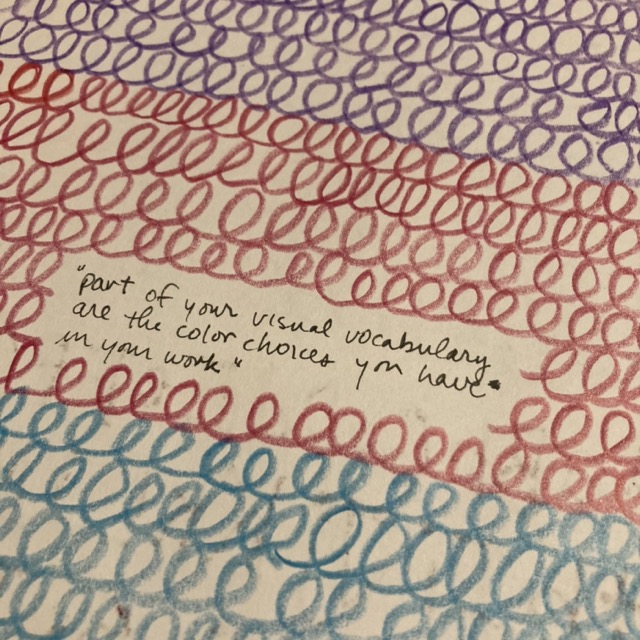 "part of your visual vocabulary
are the color choices you have
in your work"